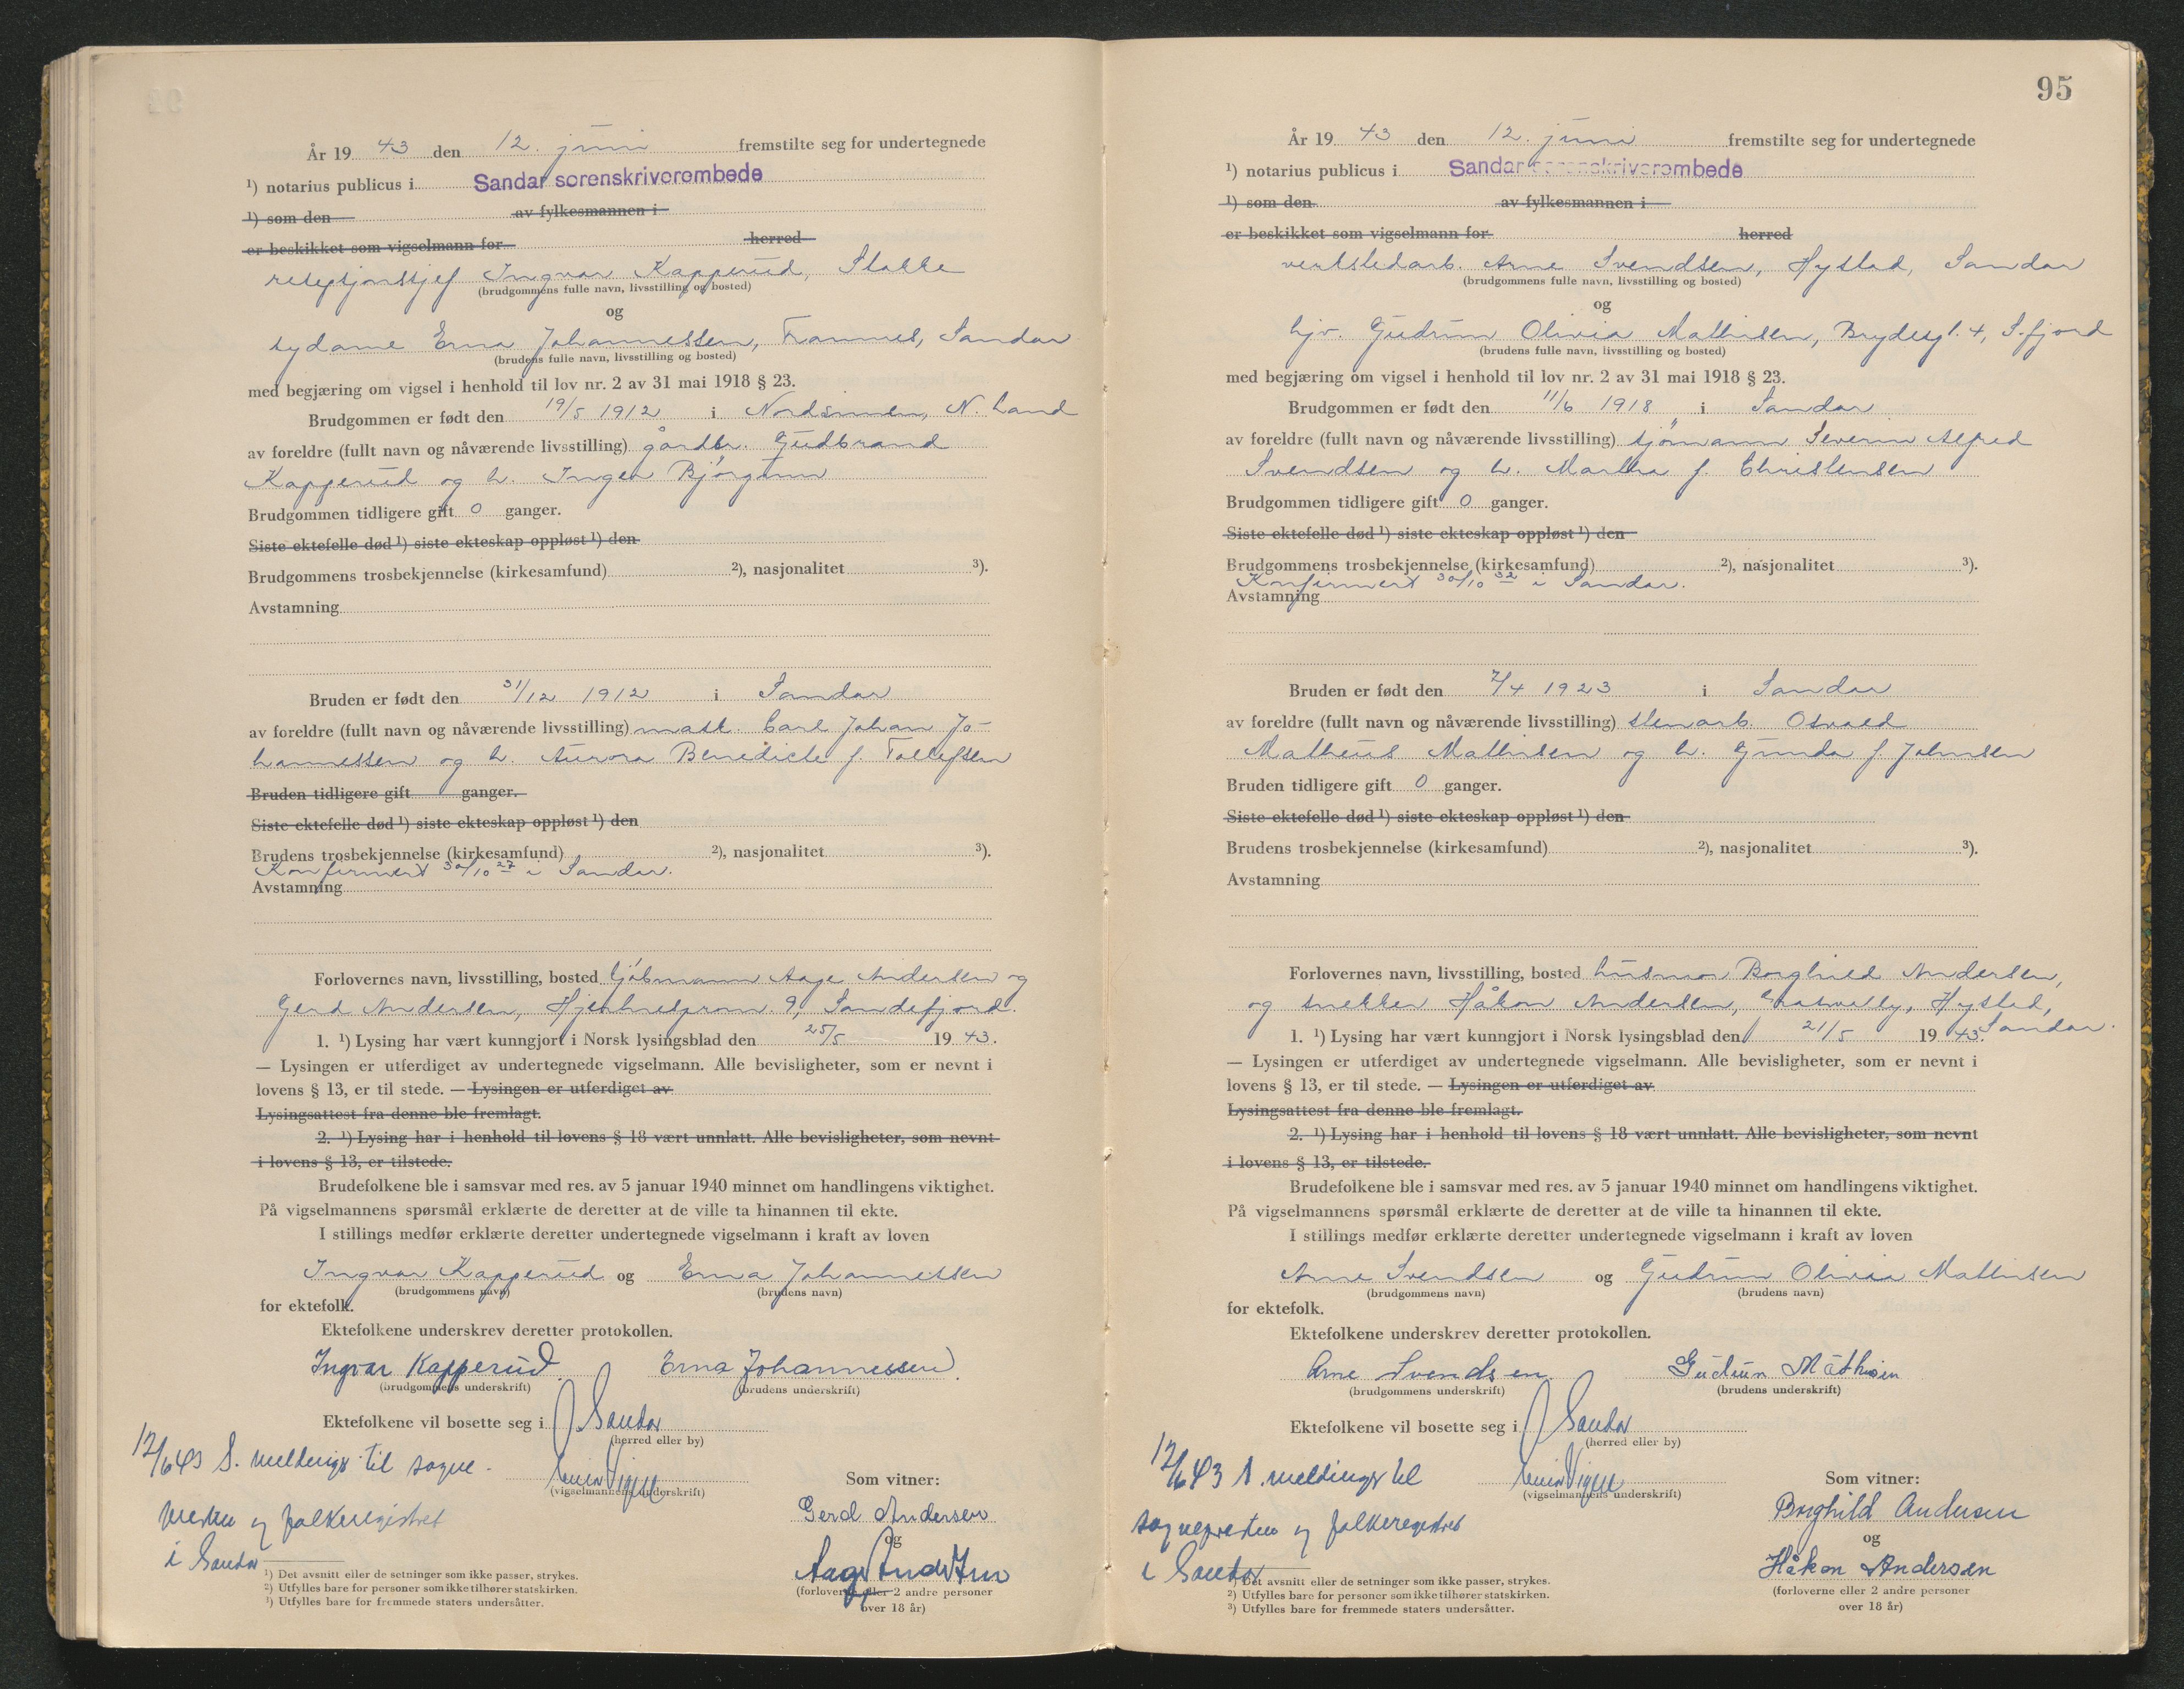 År 19 43 den 12. juni fremstilte seg for undertegnede
¹) notarius publicus i Sandar sorenskriverembede
¹) som den av fylkesmannen i
er beskikket som vigselmann for herred
Ingvar Kapperud, Stokke
(brudgommens fulle navn, livsstilling og bosted)
og
sydame Erna Johannessen, Framnes, Sandar
(brudens fulle navn, livsstilling og bosted)
med begjæring om vigsel i henhold til lov nr. 2 av 31 mai 1918 § 23.
Brudgommen er født den 19/5 1912 i Nordsinnen, N. Land
av foreldre (fullt navn og nåværende livsstilling) gårdbr. Gudbrand
Kapperud og h. Inger
Brudgommen tidligere gift 0 ganger.
Siste ektefelle død ¹) siste ekteskap oppløst ¹) den
Brudgommens trosbekjennelse (kirkesamfund) ²), nasjonalitet ³).
Avstamning
Bruden er født den 31/12 1912 i Sandar
av foreldre (fullt navn og nåværende livsstilling) mask. Carl Johan Jo-
hannessen og h. Aurora Benedicte f. Tollefsen
Bruden tidligere gift ganger.
Siste ektefelle død ¹) siste ekteskap oppløst ¹) den
Brudens trosbekjennelse (kirkesamfund) ²), nasjonalitet ³).
Konfirmert 30/10 27 i Sandar.
Avstamning
Forlovernes navn, livsstilling, bosted sjømann Aage Andersen og
Gerd Andersen, Hjertnesprom. 9, Sandefjord.
1. ¹) Lysing har vært kunngjort i Norsk lysingsblad den 25/5 19 43.
— Lysingen er utferdiget av undertegnede vigselmann. Alle bevisligheter, som er nevnt i
lovens § 13, er til stede. — Lysingen er utferdiget av
Lysingsattest fra denne ble fremlagt.
2. ¹) Lysing har i henhold til lovens § 18 vært unnlatt. Alle bevisligheter, som nevnt
i lovens § 13, er tilstede.
Brudefolkene ble i samsvar med res. av 5 januar 1940 minnet om handlingens viktighet.
På vigselmannens spørsmål erklærte de deretter at de ville ta hinannen til ekte.
I stillings medfør erklærte deretter undertegnede vigselmann i kraft av loven
Ingvar Kapperud og Erna Johannessen
(brudgommens navn) (brudens navn)
for ektefolk.
Ektefolkene underskrev deretter protokollen.
Ingvar Kapperud Erna Johannessen
(brudgommens underskrift) (brudens underskrift)
Ektefolkene vil bosette seg i Sandar
(herred eller by)
12/6 43 S. meldings til sogne-
(vigselmannens underskrift)
Som vitner:
presten og folkeregistret
Gerd Andersen
og
i Sandar
Aage Andersen
(forloverne eller 2 andre personer
over 18 år)
¹) Det avsnitt eller de setninger som ikke passer, strykes.
²) Utfylles bare for personer som ikke tilhører statskirken.
³) Utfylles bare for fremmede staters undersåtter.
95
År 19 43 den 12. juni fremstilte seg for undertegnede
¹) notarius publicus i Sandar sorenskriverembede
¹) som den av fylkesmannen i
er beskikket som vigselmann for herred
verkstedarb. Arne Svendsen, Hystad, Sandar
(brudgommens fulle navn, livsstilling og bosted)
og
hjv. Gudrun Olivia Mathisen, Brydesgt. 4, S.fjord
(brudens fulle navn, livsstilling og bosted)
med begjæring om vigsel i henhold til lov nr. 2 av 31 mai 1918 § 23.
Brudgommen er født den 11/6 1918 i Sandar
av foreldre (fullt navn og nåværende livsstilling) sjømann Severin Alfred
Svendsen og h. Martha f. Christensen
Brudgommen tidligere gift 0 ganger.
Siste ektefelle død ¹) siste ekteskap oppløst ¹) den
Brudgommens trosbekjennelse (kirkesamfund) ²), nasjonalitet ³).
Konfirmert 30/10 32 i Sandar.
Avstamning
Bruden er født den 7/4 1923 i Sandar
av foreldre (fullt navn og nåværende livsstilling) stenarb. Osvald
Matheus Mathisen og h. Gunda f. Johnsen
Bruden tidligere gift 0 ganger.
Siste ektefelle død ¹) siste ekteskap oppløst ¹) den
Brudens trosbekjennelse (kirkesamfund) ²), nasjonalitet ³).
Avstamning
Forlovernes navn, livsstilling, bosted husmor Borghild Andersen,
og snekker Håkon Andersen, Hystad,
Sandar.
1. ¹) Lysing har vært kunngjort i Norsk lysingsblad den 21/5 19 43.
— Lysingen er utferdiget av undertegnede vigselmann. Alle bevisligheter, som er nevnt i
lovens § 13, er til stede. — Lysingen er utferdiget av
Lysingsattest fra denne ble fremlagt.
2. ¹) Lysing har i henhold til lovens § 18 vært unnlatt. Alle bevisligheter, som nevnt
i lovens § 13, er tilstede.
Brudefolkene ble i samsvar med res. av 5 januar 1940 minnet om handlingens viktighet.
På vigselmannens spørsmål erklærte de deretter at de ville ta hinannen til ekte.
I stillings medfør erklærte deretter undertegnede vigselmann i kraft av loven
Arne Svendsen og Gudrun Olivia Mathisen
(brudgommens navn) (brudens navn)
for ektefolk.
Ektefolkene underskrev deretter protokollen.
Arne Svendsen Gudrun Mathisen
(brudgommens underskrift) (brudens underskrift)
Ektefolkene vil bosette seg i Sandar
(herred eller by)
12/6 43 S. meldings til
(vigselmannens underskrift)
Som vitner:
sognepresten og folkeregistret
Borghild Andersen
og
i Sandar
Håkon Andersen
(forloverne eller 2 andre personer
over 18 år)
¹) Det avsnitt eller de setninger som ikke passer, strykes.
²) Utfylles bare for personer som ikke tilhører statskirken.
³) Utfylles bare for fremmede staters undersåtter.